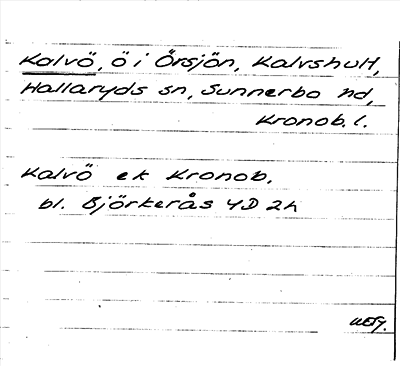 Kalvö, ö i Örsjön, Kalvshult,
Hallaryds sn, Sunnerbo hd,
Kronob. l.
Kalvö ek Kronob.
bl. Björkerås 4D 2h